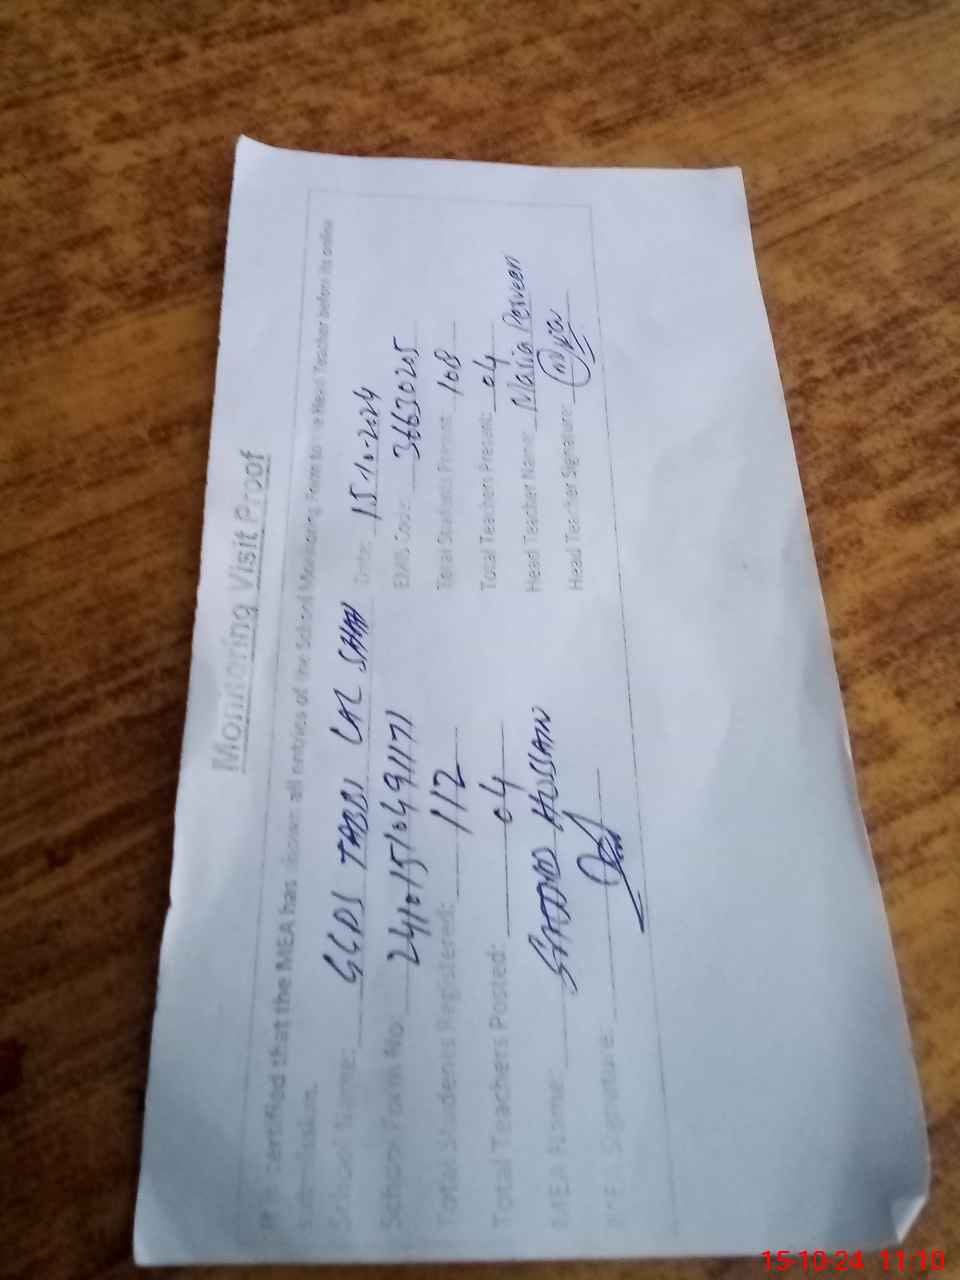 Monitoring Visit Proof
It is certified that the MEA has shown all entries of the School Monitoring Form to the Head Teacher before its online
Submission.
School Name: GGPS TABBI LAL SHAH Date: 15-10-2024
School Form No: 241015104911171 EMIS Code: 36630205
Total Students Registered: 112 Total Students Present: 108
Total Teachers Posted: 04 Total Teachers Present: 04
MEA Name: HUSSAIN Head Teacher Name: Maria Perveen
MEA Signature: Head Teacher Signature:
15-10-24 11:10